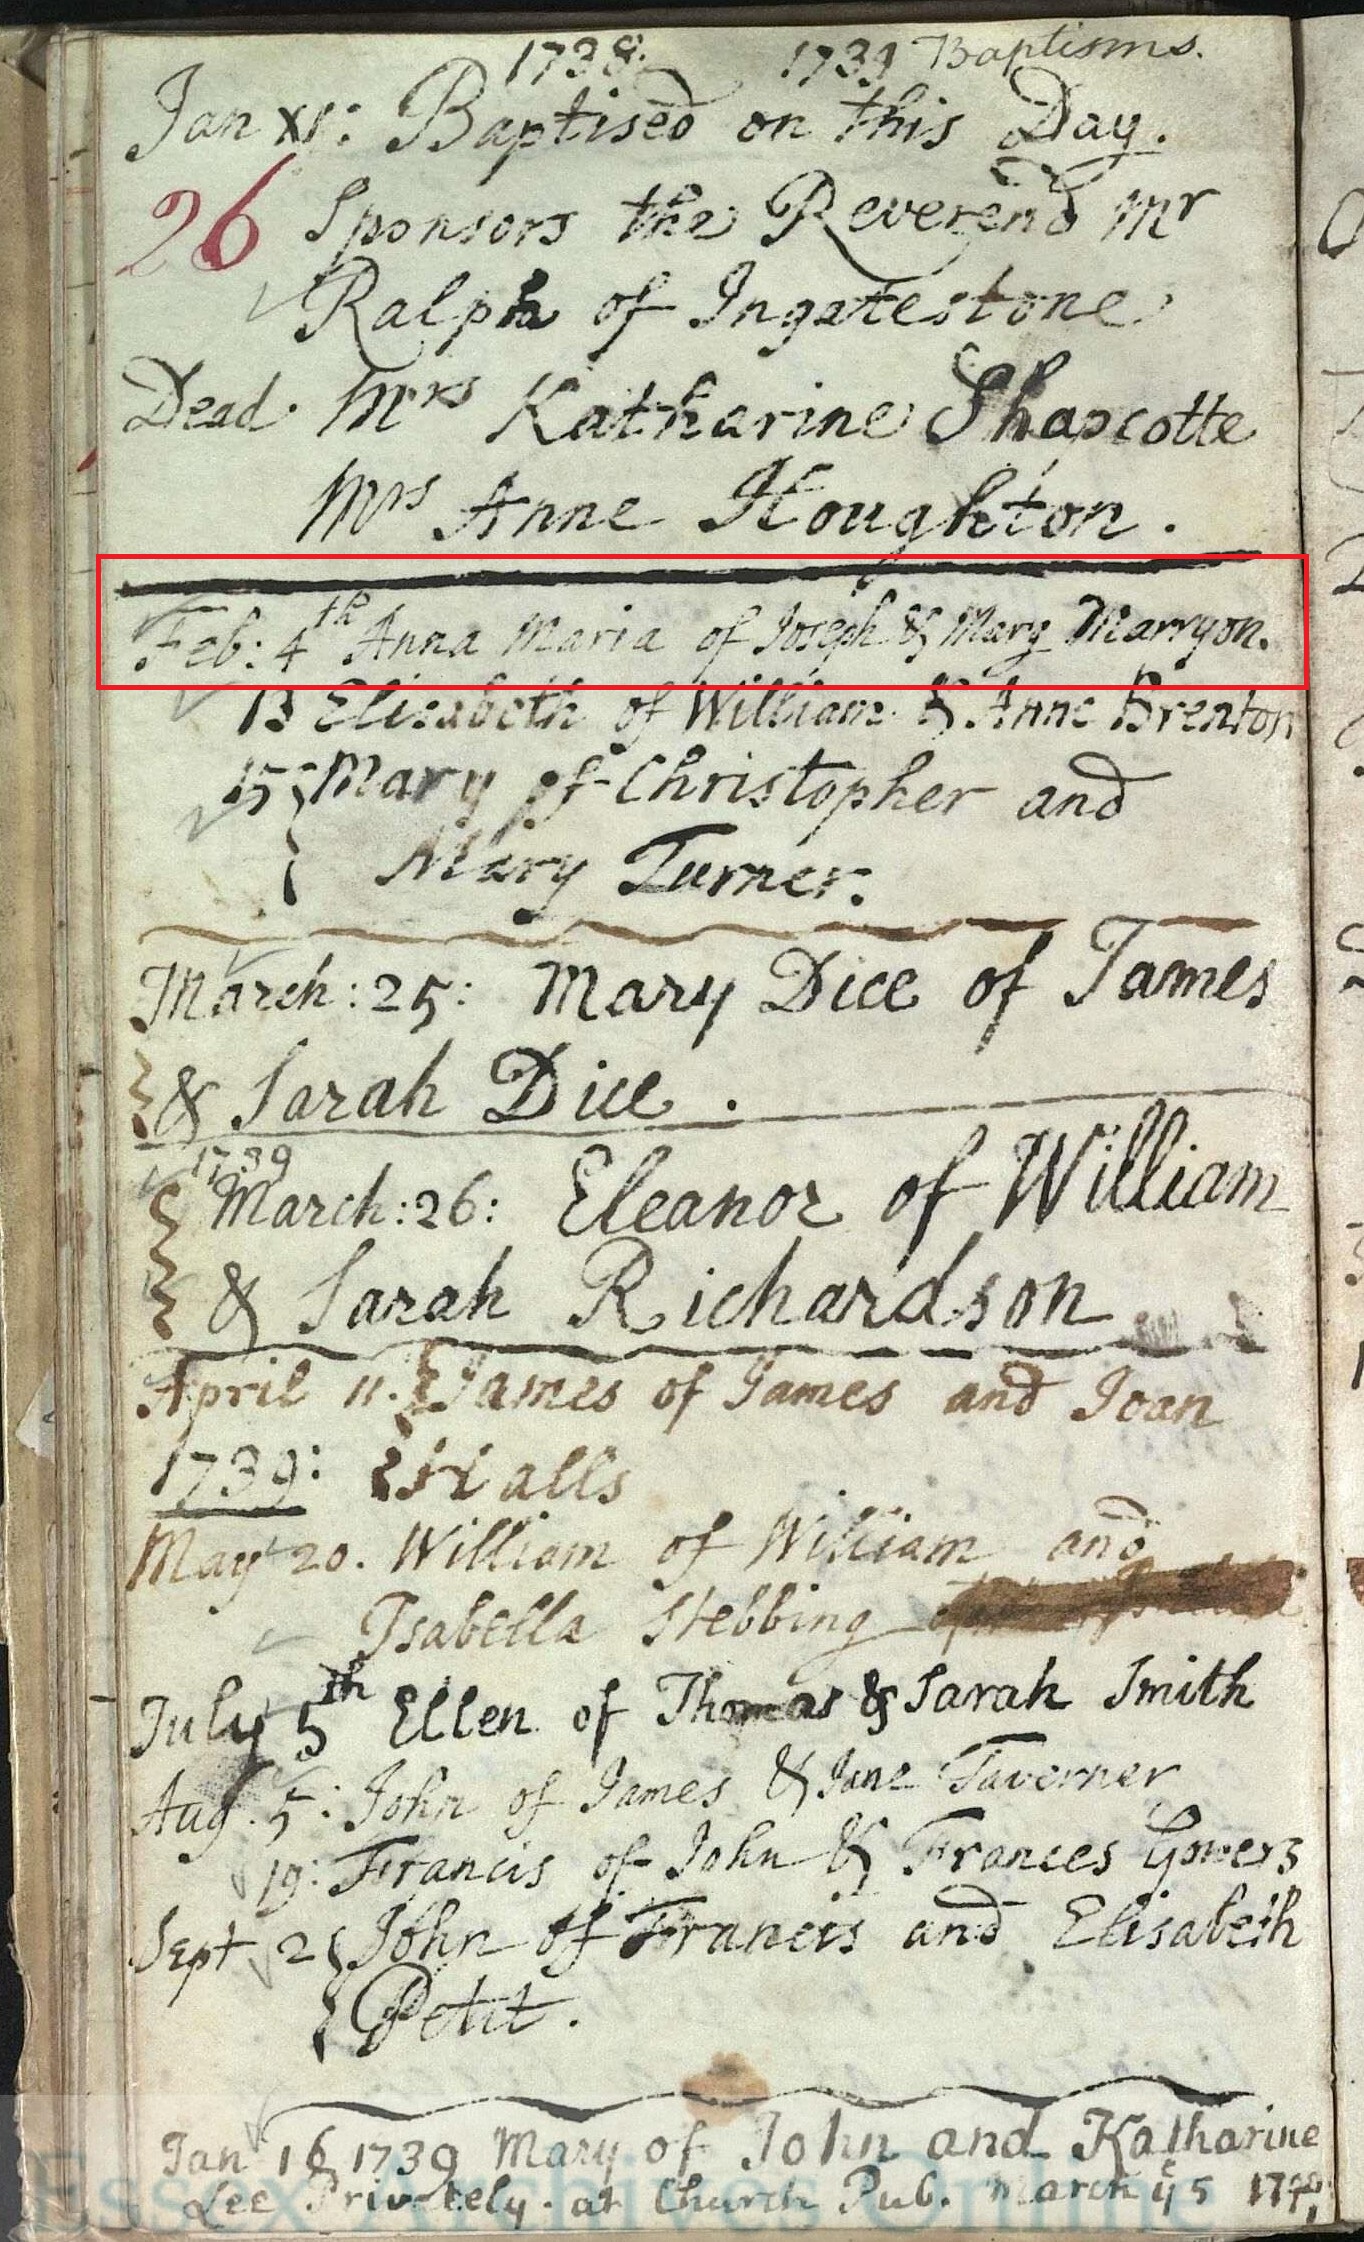 1738. 1739 Baptisms.
Jan xi: Baptised on this Day.
26 Sponsors the Reverend Mr
Ralph of Ingatestone
Dead. Mrs Katharine Shapcotte
Mrs Anne Houghton.
Feb: 4th Anna Maria of Joseph & Mary Marryon.
13 Elizabeth of William & Anne Brenton
15 Mary of Christopher and
Mary Turner.
March: 25: Mary Dice of James
& Sarah Dice.
1739
March: 26: Eleanor of William
& Sarah Richardson
April 11. James of James and Joan
1739: Halls
May 20. William of William and
Isabella Stebbing
July 5th Ellen of Thomas & Sarah Smith
Aug. 5: John of James & Jane Taverner
19: Francis of John & Frances Gowers
Sept 2 John of Francis and Elisabeth
Petit.
Jan 16 1739 Mary of John and Katharine
Lee Privately. at Church Pub. March
Essex Archives Online